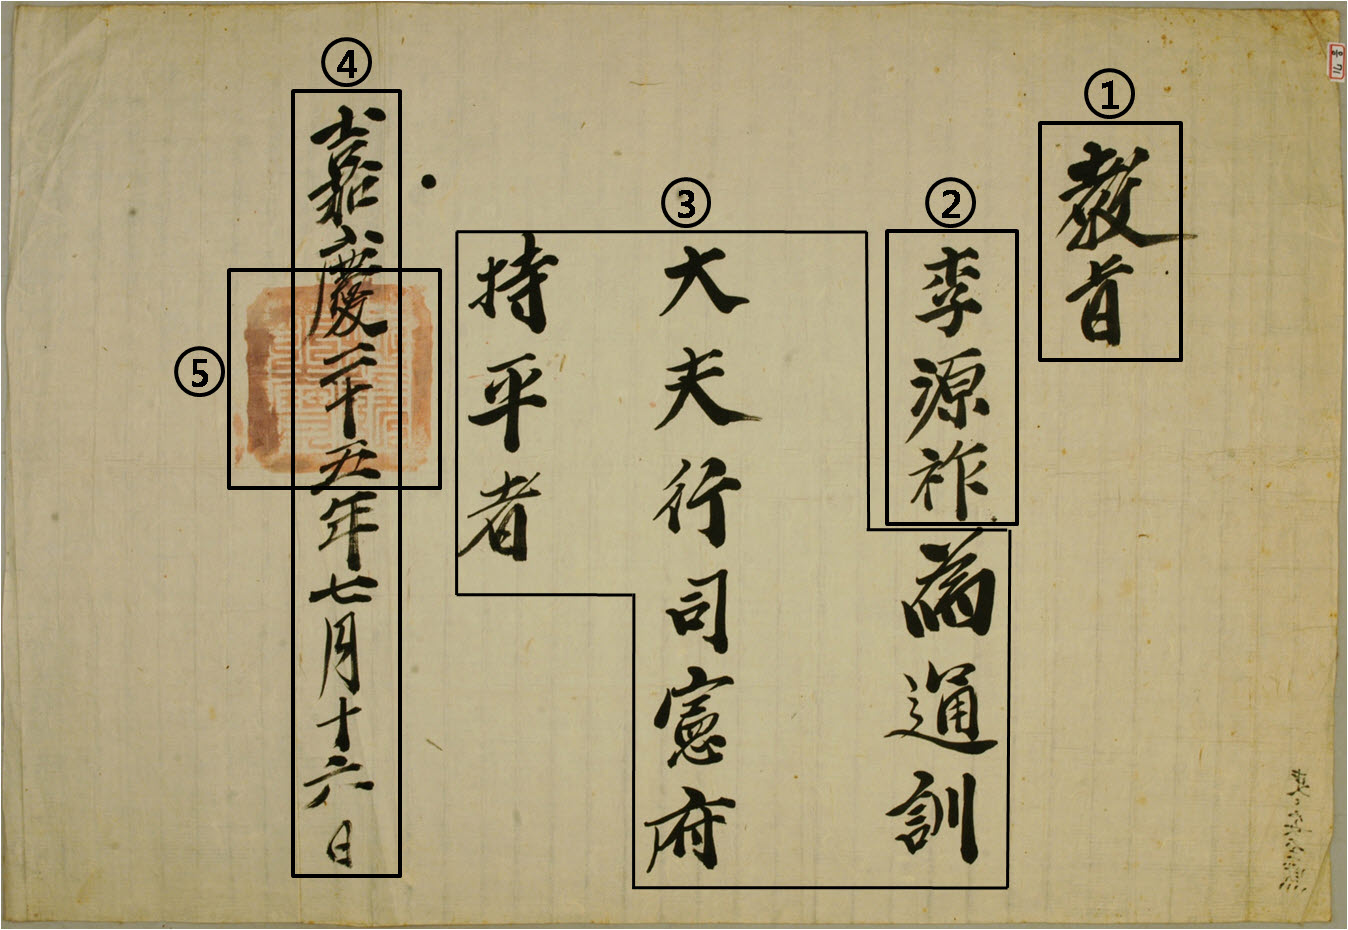 ①
教旨
②
李源祚
③
爲通訓
大夫行司憲府
持平者
④
嘉慶二十五年七月十六日
⑤
71